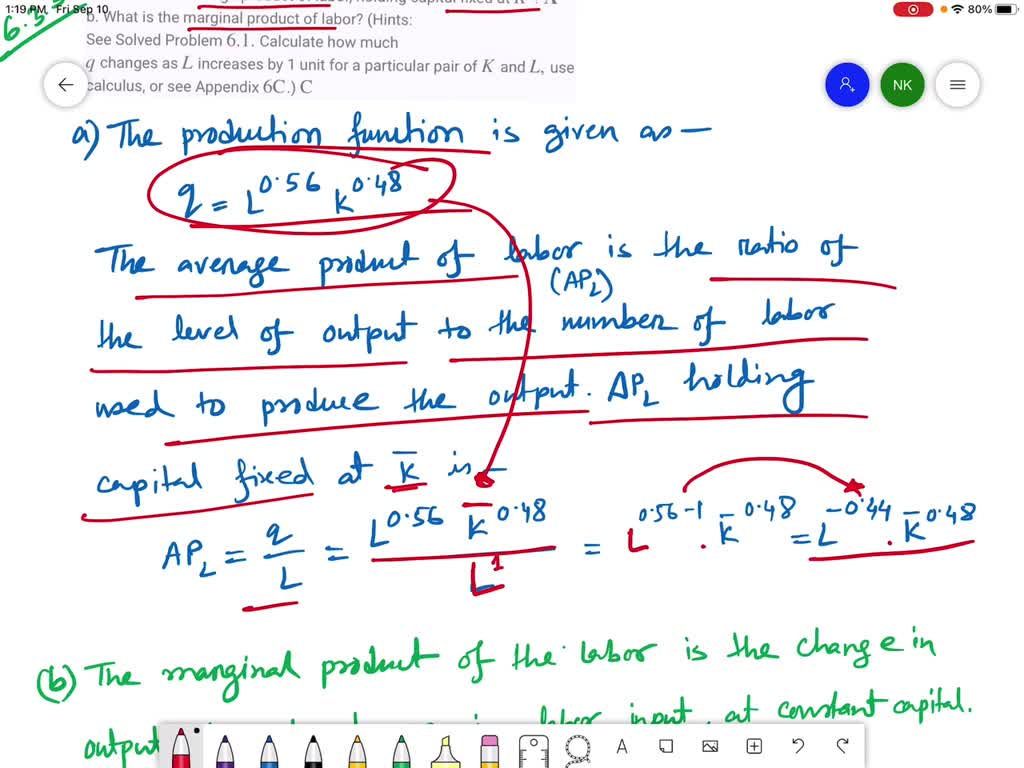 1:19 PM Fri Sep 10
80%
6.3
b. What is the marginal product of labor? (Hints:
See Solved Problem 6.1. Calculate how much
q changes as L increases by 1 unit for a particular pair of K and L, use
calculus, or see Appendix 6C.) C
NK
a) The production function is given as —
q = L^0.56 K^0.48
The average product of labor is the ratio of
(AP_L)
the level of output to the number of labor
used to produce the output. AP_L holding
capital fixed at K̅ is —
AP_L = q/L = L^0.56 K̅^0.48 / L^1 = L^0.56-1 . K̅^0.48 = L^-0.44 . K̅^0.48
(b) The marginal product of the labor is the change in
output labor input, at constant capital.
A